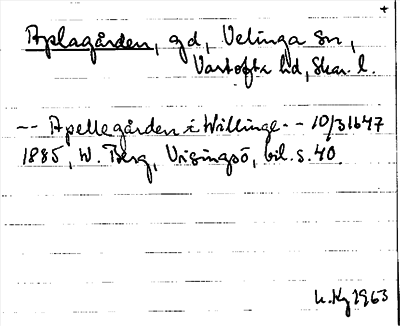 +
Aplagården, gd, Velinga sn,
Vartofta hd, Skar. l.
-- Apellegården i Willinge -- 10/3 1647
1885, W. Berg, Visingsö, bil. s. 40.
1963